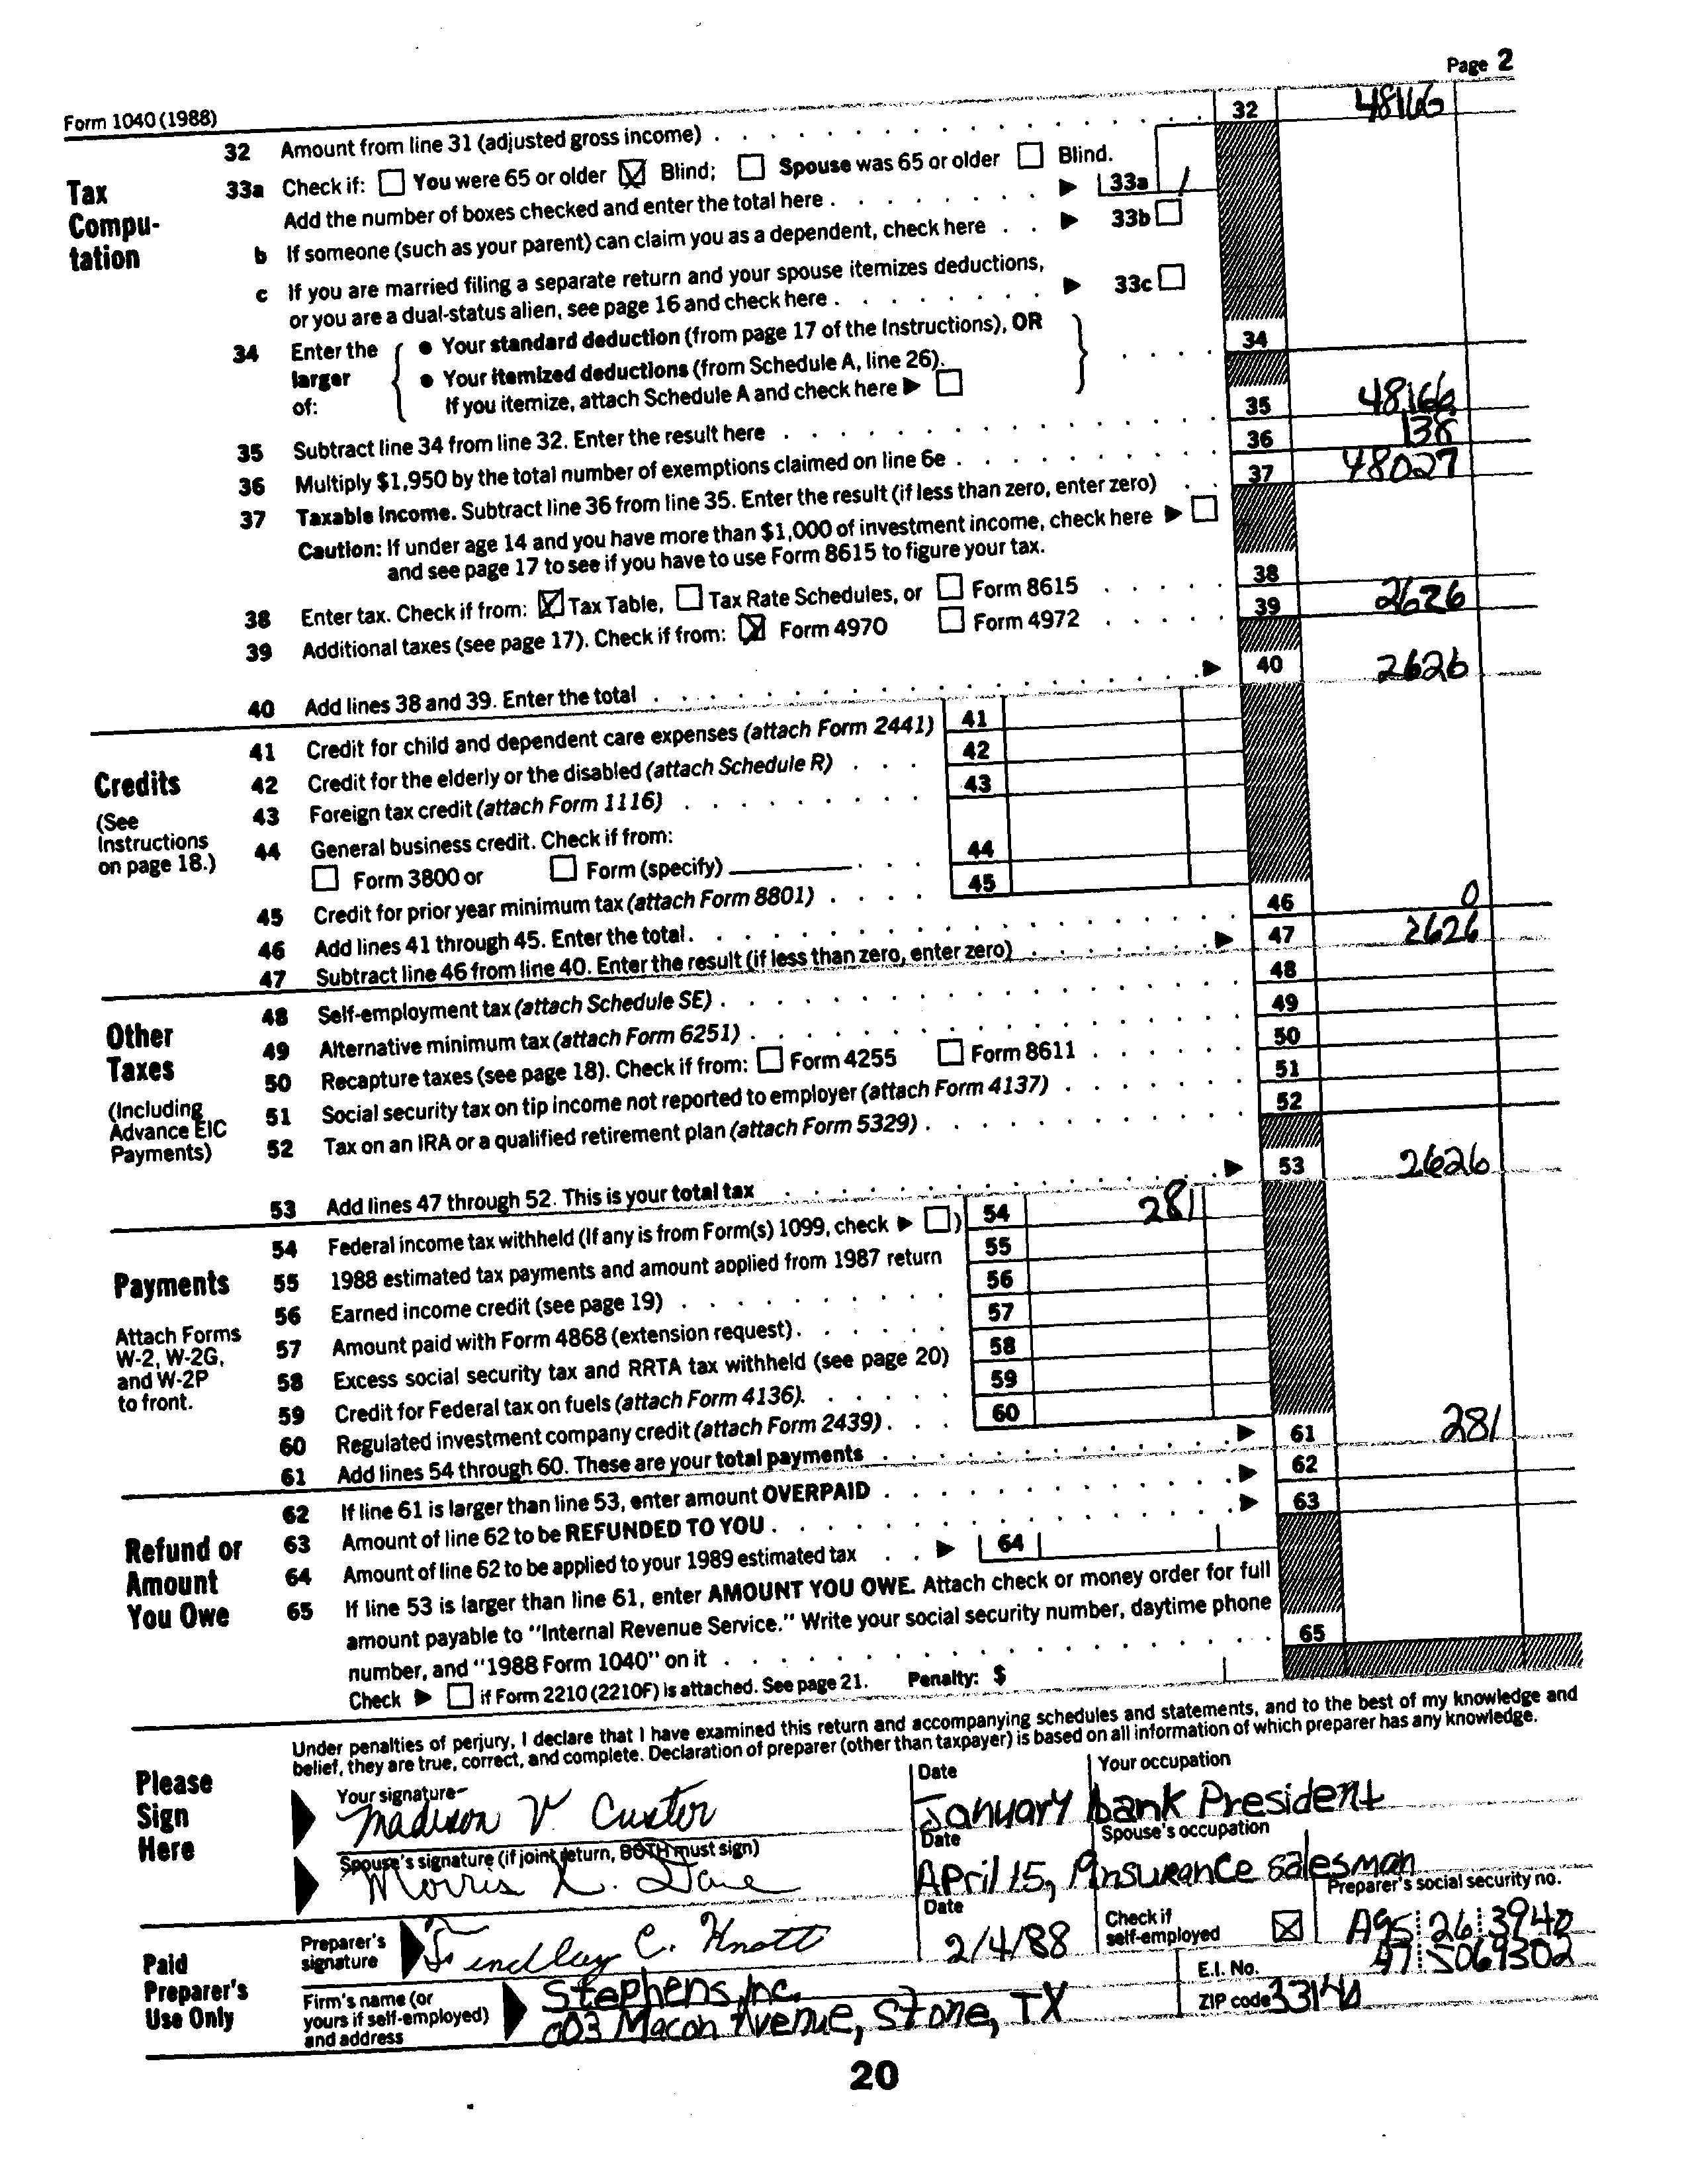 Page 2
Form 1040 (1988)
32 Amount from line 31 (adjusted gross income) 32 48166
Tax Compu-tation
33a Check if: You were 65 or older Blind; Spouse was 65 or older Blind.
Add the number of boxes checked and enter the total here 33a 1
b If someone (such as your parent) can claim you as a dependent, check here 33b
c If you are married filing a separate return and your spouse itemizes deductions,
or you are a dual-status alien, see page 16 and check here 33c
34 Enter the larger of:
• Your standard deduction (from page 17 of the Instructions), OR
• Your itemized deductions (from Schedule A, line 26).
If you itemize, attach Schedule A and check here
34
35 Subtract line 34 from line 32. Enter the result here 35 48166
36 Multiply $1,950 by the total number of exemptions claimed on line 6e 36 138
37 Taxable Income. Subtract line 36 from line 35. Enter the result (if less than zero, enter zero) 37 48027
Caution: If under age 14 and you have more than $1,000 of investment income, check here
and see page 17 to see if you have to use Form 8615 to figure your tax.
38 Enter tax. Check if from: Tax Table, Tax Rate Schedules, or Form 8615 38
39 Additional taxes (see page 17). Check if from: Form 4970 Form 4972 39 2626
40 Add lines 38 and 39. Enter the total 40 2626
Credits
(See Instructions on page 18.)
41 Credit for child and dependent care expenses (attach Form 2441) 41
42 Credit for the elderly or the disabled (attach Schedule R) 42
43 Foreign tax credit (attach Form 1116) 43
44 General business credit. Check if from:
Form 3800 or Form (specify) 44
45 Credit for prior year minimum tax (attach Form 8801) 45
46 Add lines 41 through 45. Enter the total. 46 0
47 Subtract line 46 from line 40. Enter the result (if less than zero, enter zero) 47 2626
Other Taxes
(Including Advance EIC Payments)
48 Self-employment tax (attach Schedule SE) 48
49 Alternative minimum tax (attach Form 6251) 49
50 Recapture taxes (see page 18). Check if from: Form 4255 Form 8611 50
51 Social security tax on tip income not reported to employer (attach Form 4137) 51
52 Tax on an IRA or a qualified retirement plan (attach Form 5329) 52
53 Add lines 47 through 52. This is your total tax 53 2626
Payments
Attach Forms W-2, W-2G, and W-2P to front.
54 Federal income tax withheld (If any is from Form(s) 1099, check ) 54 281
55 1988 estimated tax payments and amount applied from 1987 return 55
56 Earned income credit (see page 19) 56
57 Amount paid with Form 4868 (extension request). 57
58 Excess social security tax and RRTA tax withheld (see page 20) 58
59 Credit for Federal tax on fuels (attach Form 4136). 59
60 Regulated investment company credit (attach Form 2439) 60
61 Add lines 54 through 60. These are your total payments 61 281
Refund or Amount You Owe
62 If line 61 is larger than line 53, enter amount OVERPAID 62
63 Amount of line 62 to be REFUNDED TO YOU 63
64 Amount of line 62 to be applied to your 1989 estimated tax 64
65 If line 53 is larger than line 61, enter AMOUNT YOU OWE. Attach check or money order for full
amount payable to "Internal Revenue Service." Write your social security number, daytime phone
number, and "1988 Form 1040" on it 65
Check if Form 2210 (2210F) is attached. See page 21. Penalty: $
Please Sign Here
Under penalties of perjury, I declare that I have examined this return and accompanying schedules and statements, and to the best of my knowledge and
belief, they are true, correct, and complete. Declaration of preparer (other than taxpayer) is based on all information of which preparer has any knowledge.
Your signature Date Your occupation
Madison V. Custer January bank President
Spouse's signature (if joint return, BOTH must sign) Date Spouse's occupation
Morris L. Dane April 15, Insurance salesman
Paid Preparer's Use Only
Preparer's signature Date Check if self-employed Preparer's social security no.
Findlay C. Knott 2/4/88 A95 26 3940
Firm's name (or yours if self-employed) and address
Stephens, Inc. E.I. No. A7 5069302
003 Macon Avenue, Stone, TX ZIP code 33140
20